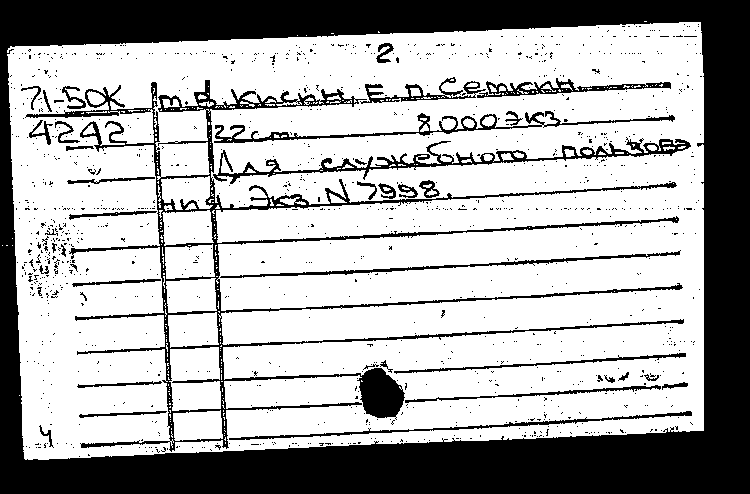 2.
71-50К т.В. Кисин, Е.П. Семкин.
4242 22 ст. 8000 экз.
Для служебного пользова-
ния. Экз. N 7998.
4